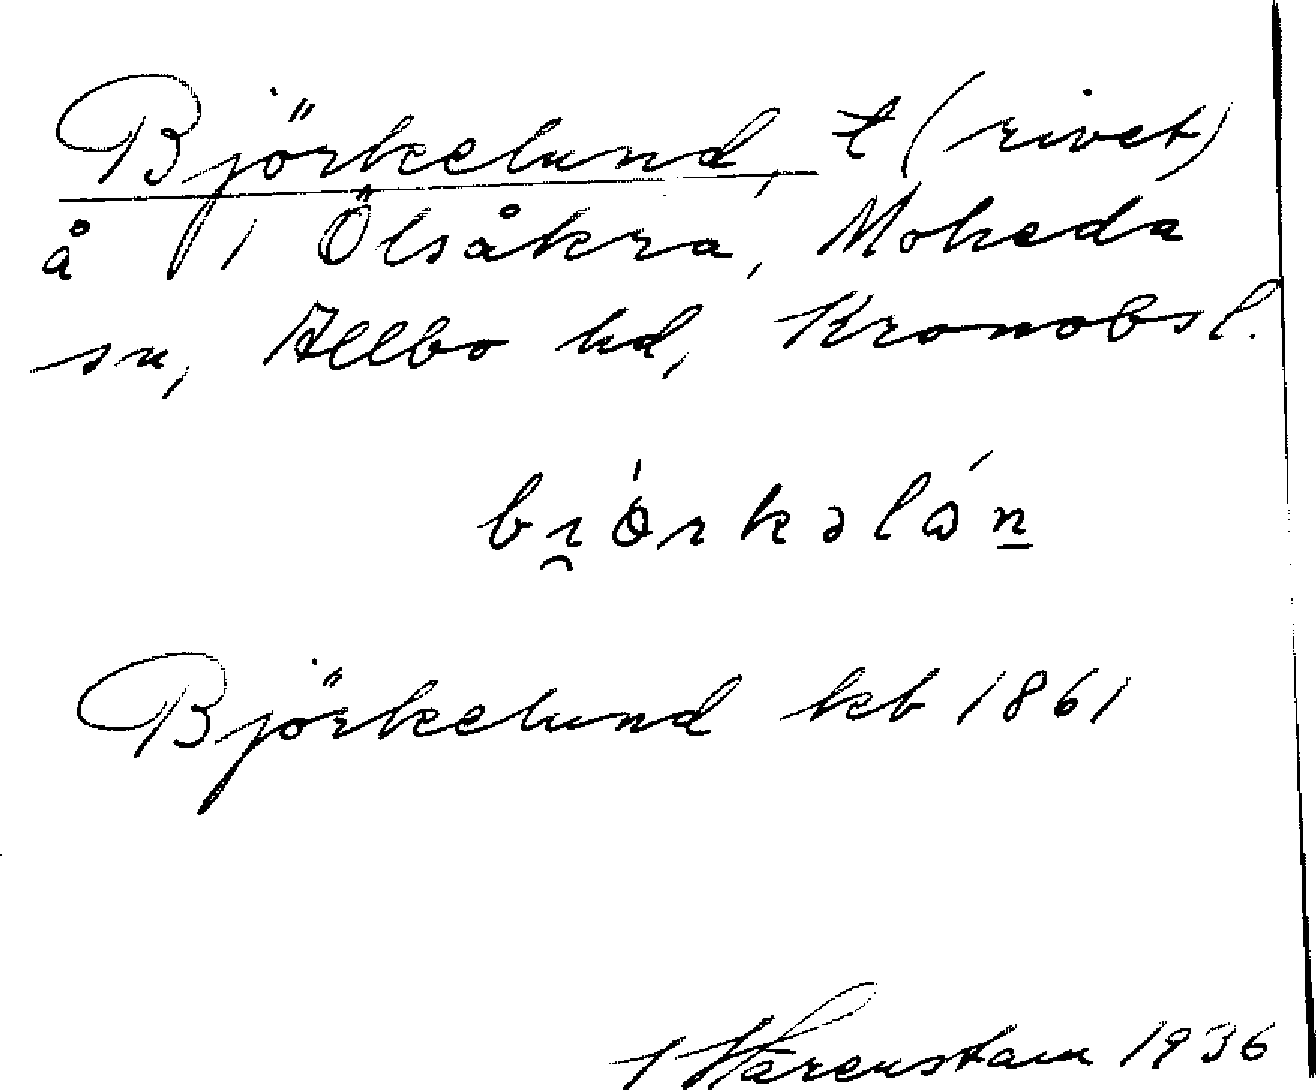 Björkelund, t (rivet)
å 1 Ölsåkra, Moheda
sn, Allbo hd, Kronobsl.
Björkelund kb 1861
Härenstam 1936